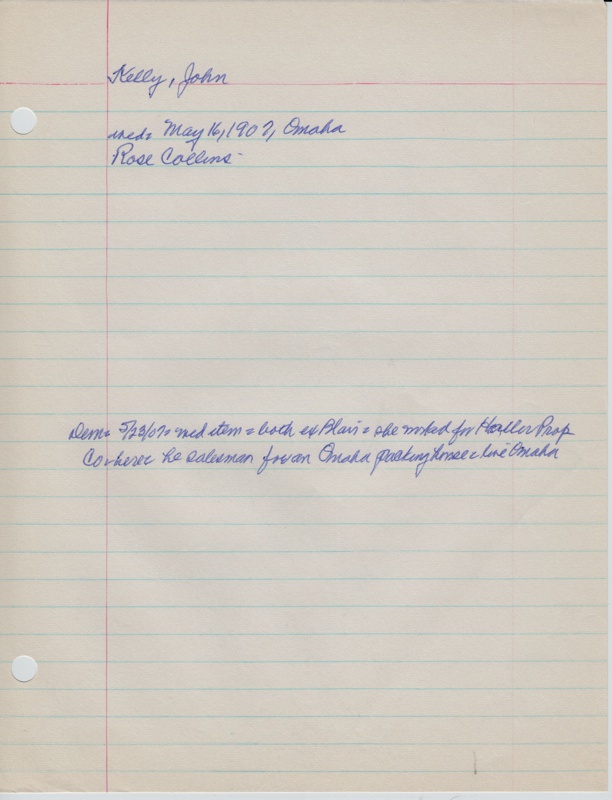 Kelly, John
wed= May 16, 1907, Omaha
Rose Collins-
Dem= 5/23/07= wed item= both ex Blair= she worked for Haller Prop
Co= here= he salesman for an Omaha packing house= live Omaha